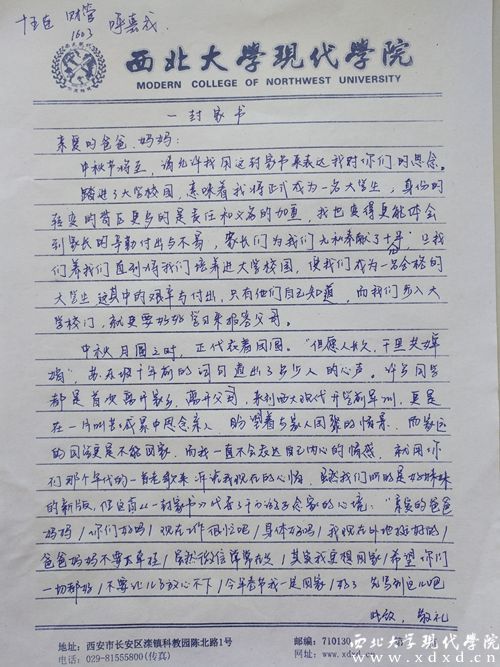 财管
1603
西北大学现代学院
MODERN COLLEGE OF NORTHWEST UNIVERSITY
一封家书
亲爱的爸爸、妈妈:
中秋节将至,请允许我用这封家书来表达我对你们的思念。
踏进了大学校园,意味着我将正式成为一名大学生,身份的
转变的背后更多的是责任和义务的加重,我也变得更能体会
到家长的辛勤付出与不易,家长们为我们无私奉献了十年,
们养我们直到将我们培养进大学校园,使我们成为一名合格的
大学生 这其中的艰辛与付出,只有他们自己知道,而我们步入大
学校门,就更要好好学习来报答父母。
中秋月圆之时,正代表着团圆。“但愿人长久,千里共婵
娟”,苏东坡千年前的词句道出了多少人的心声。许多同学
都是首次离开家乡,离开父母,来到西大现代开学前军训,更是
在一片叫苦声中思念亲人 盼望着与家人团聚的情景,而家远
的同学更是不能回家,而我一直不会表达自己内心的情感,就用你
们那个年代的一首老歌来诉说我现在的心情,虽然我们听的是好妹妹
的新版,但这首《一封家书》代表了千万游子念家的心境:“亲爱的爸爸
妈妈/你们好吗/现在工作很忙吧/身体好吗/我现在外地挺好的/
爸爸妈妈不要太牵挂/虽然微信常常在发/其实我更想回家/希望你们
一切都好/不要让儿子放心不下/今年春节我一定回家/好了 先写到这儿吧
此致,敬礼
地址:西安市长安区滦镇科教园陈北路1号
邮编:710130
电话:029-81555800(传真)
网址:www.xdxd.cn
西北大学现代学院
www.xdxd.cn